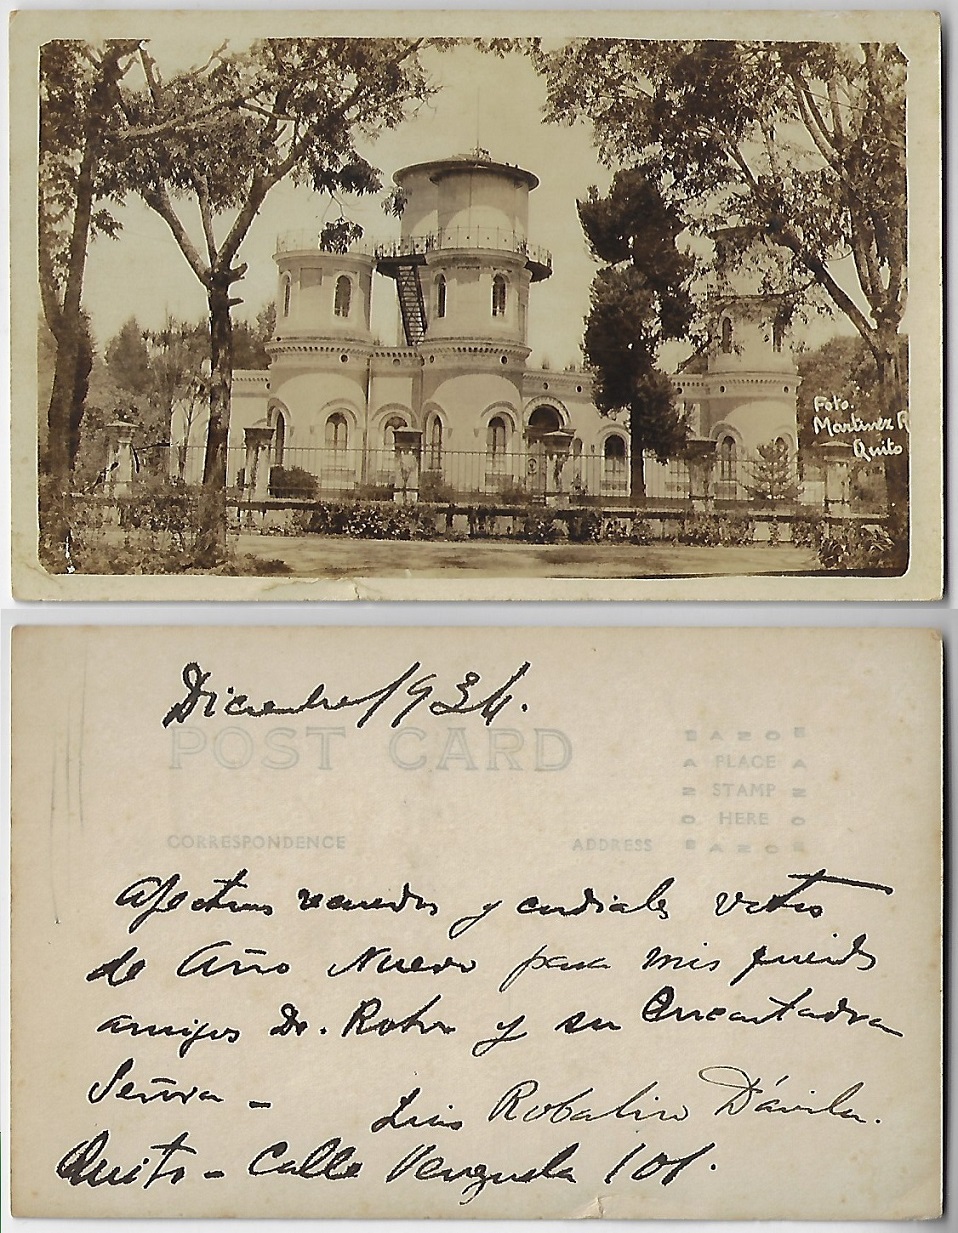 Foto.
Martinez R
Quito
Diciembre/1934.
POST CARD
PLACE
STAMP
HERE
CORRESPONDENCE
ADDRESS
Afectuosos recuerdos y cordiales votos
de Año Nuevo para mis queridos
amigos Dr. y su Encantadora
Señora -
Luis Robalino Dávila.
Quito - Calle Venezuela 101.